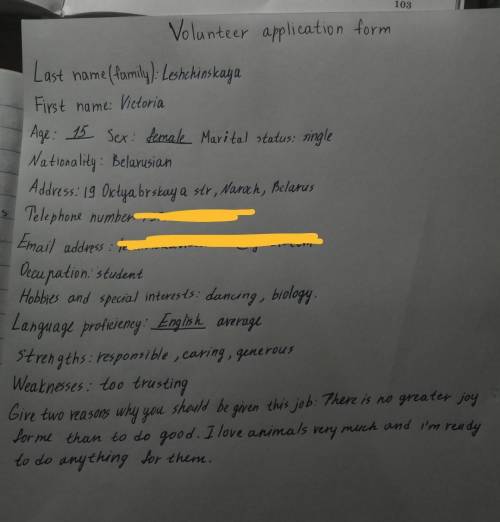 103
Volunteer application form
Last name (family): Leshchinskaya
First name: Victoria
Age: 15 Sex: female Marital status: single
Nationality: Belarusian
Address: 19 Oktyabrskaya str, Naroch, Belarus
Telephone number
Email address:
Occupation: student
Hobbies and special interests: dancing, biology.
Language proficiency: English average
Strengths: responsible, caring, generous
Weaknesses: too trusting
Give two reasons why you should be given this job: There is no greater joy
for me than to do good. I love animals very much and i'm ready
to do anything for them.